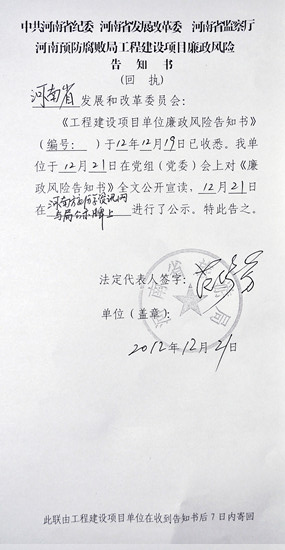 中共河南省纪委 河南省发展改革委 河南省监察厅
河南预防腐败局工程建设项目廉政风险
告知书
(回 执)
河南省发展和改革委员会：
《工程建设项目单位廉政风险告知书》
(编号： )于12年12月19日已收悉。我单
位于12月21日在党组(党委)会上对《廉
政风险告知书》全文公开宣读，12月21日
在河南
与局公示牌上进行了公示。特此告之。
法定代表人签字：
单位(盖章)：
2012年12月21日
此联由工程建设项目单位在收到告知书后7日内寄回